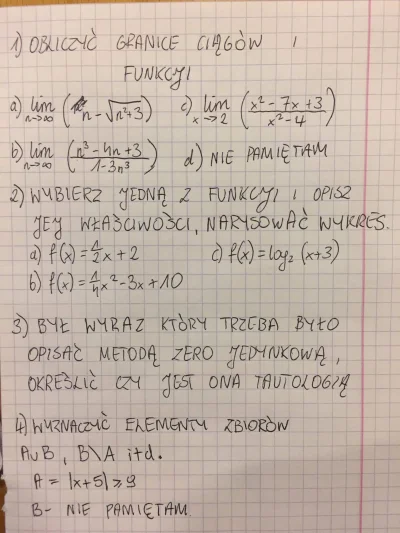 1) OBLICZYĆ GRANICE CIĄGÓW I
FUNKCJI
a) lim n→∞ (n - √(n²+3))   c) lim x→2 ((x² - 7x + 3)/(x² - 4))
b) lim n→∞ ((n³ - 4n + 3)/(1 - 3n³))   d) NIE PAMIĘTAM
2) WYBIERZ JEDNĄ Z FUNKCJI I OPISZ
JEJ WŁAŚCIWOŚCI, NARYSOWAĆ WYKRES.
a) f(x) = 1/2 x + 2   c) f(x) = log₂ (x+3)
b) f(x) = 1/4 x² - 3x + 10
3) BYŁ WYRAZ KTÓRY TRZEBA BYŁO
OPISAĆ METODĄ ZERO JEDYNKOWĄ,
OKREŚLIĆ CZY JEST ONA TAUTOLOGIĄ
4) WYZNACZYĆ ELEMENTY ZBIORÓW
A∪B, B\A itd.
A = |x+5| ⩾ 9
B - NIE PAMIĘTAM